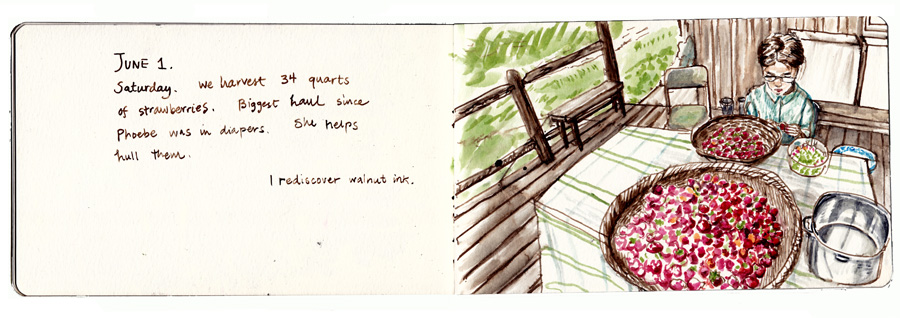 JUNE 1.
Saturday. we harvest 34 quarts
of strawberries. Biggest haul since
Phoebe was in diapers. She helps
hull them.
I rediscover walnut ink.